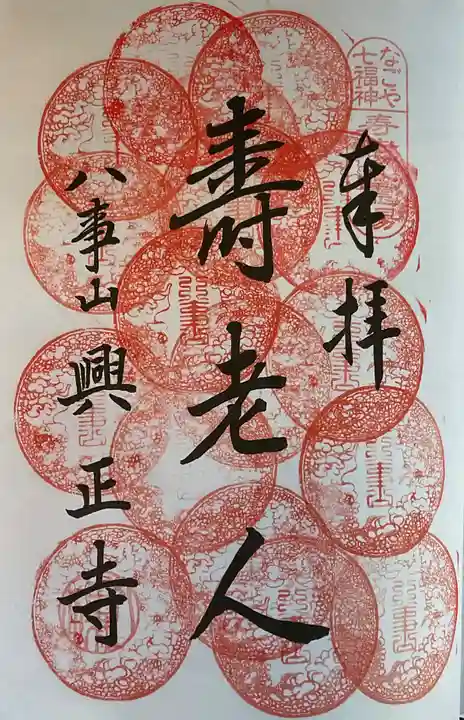 奉拝
なごや
七福神
壽老人
八事山 興正寺